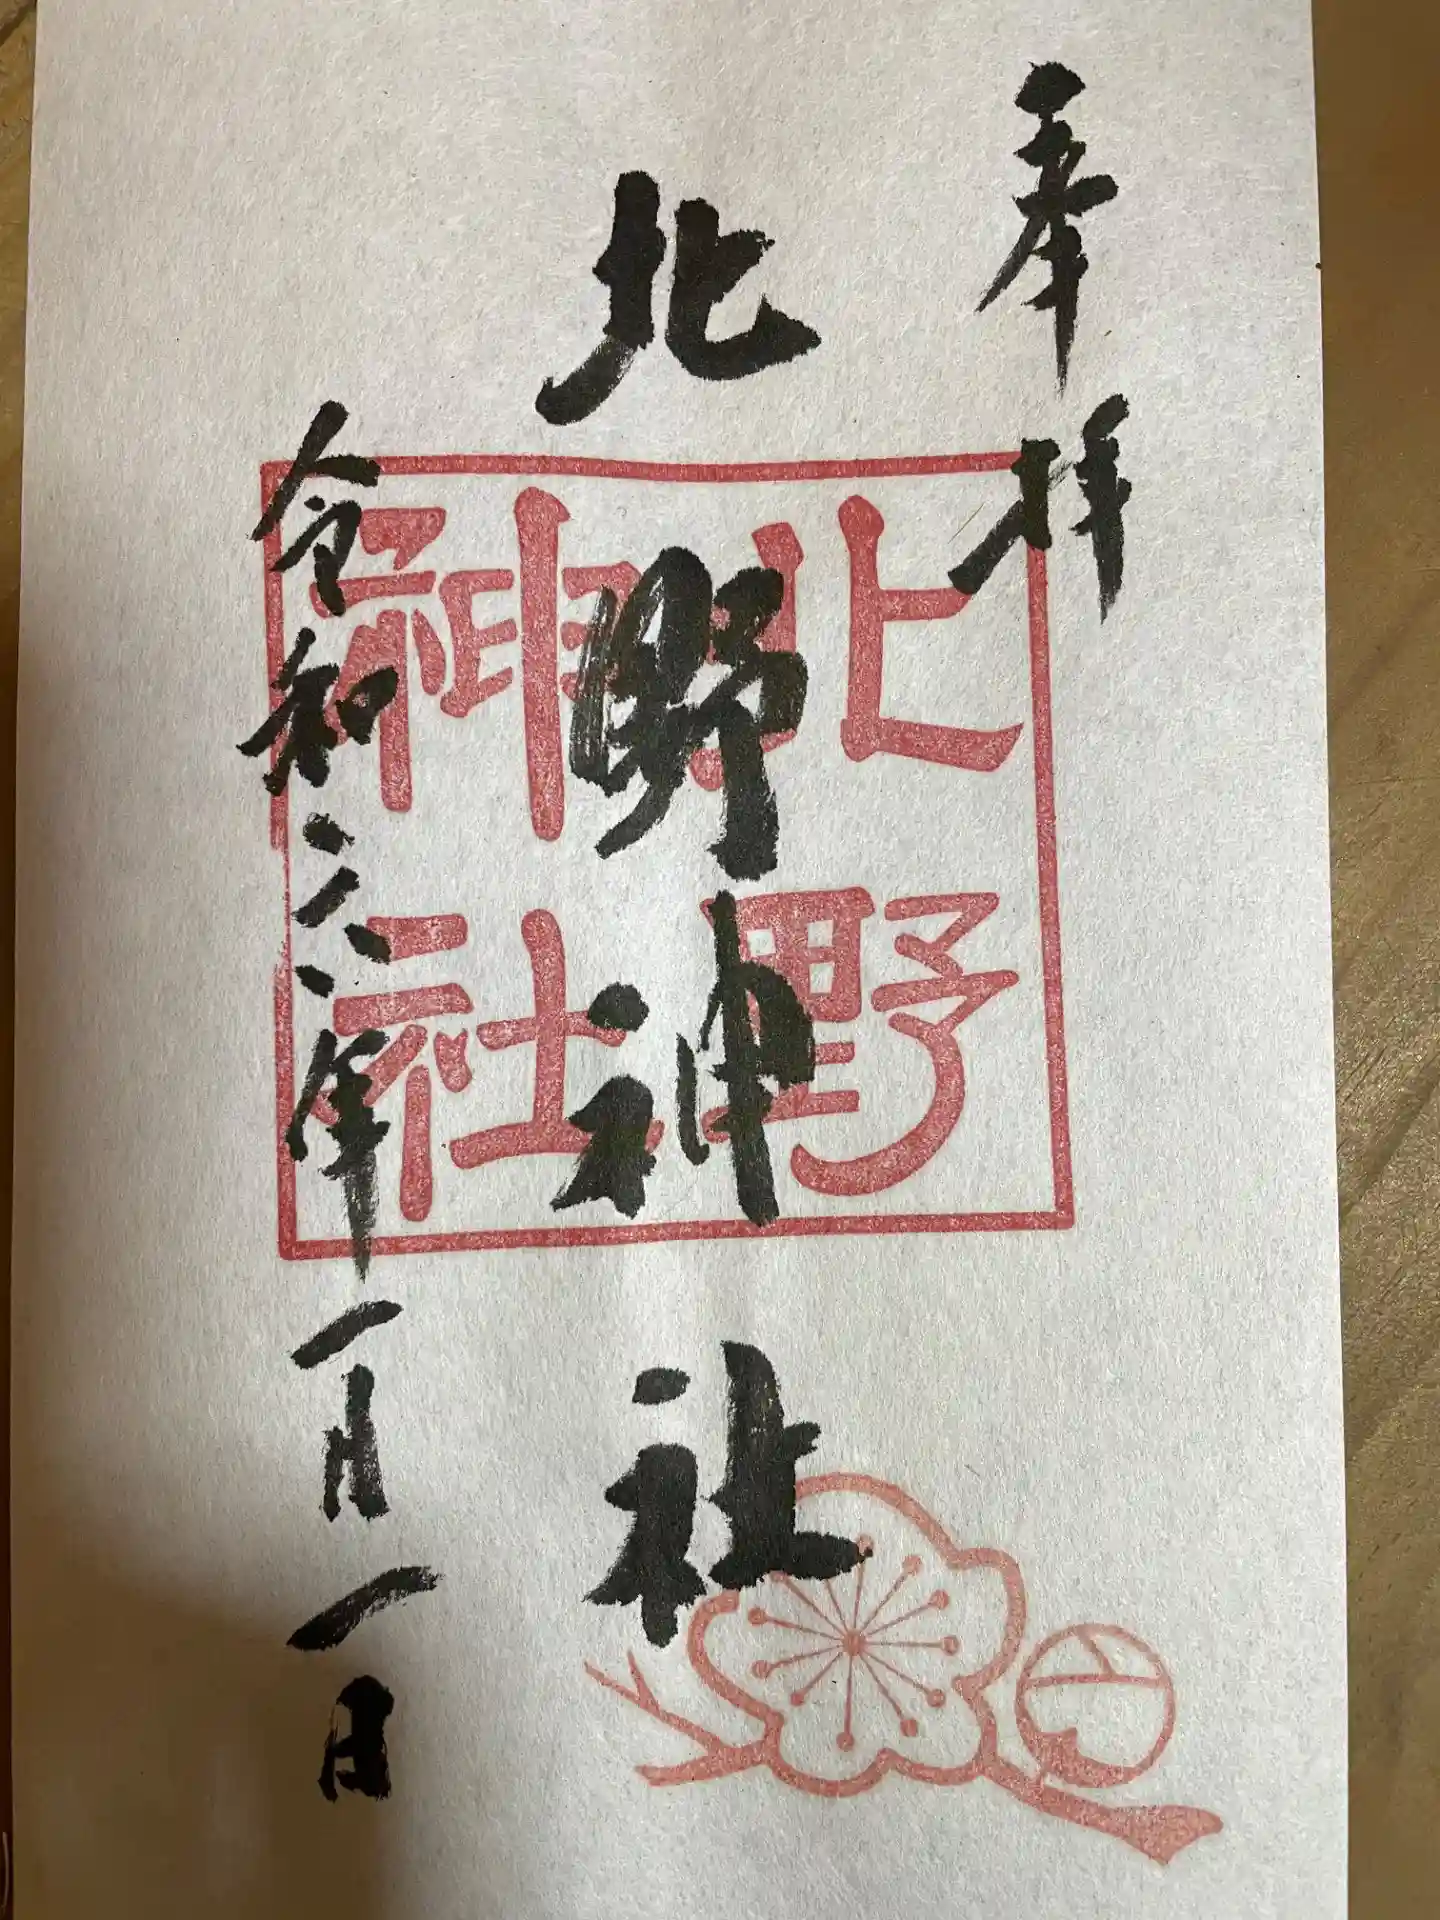 奉拝
北野神社
北野神社
令和六年一月一日